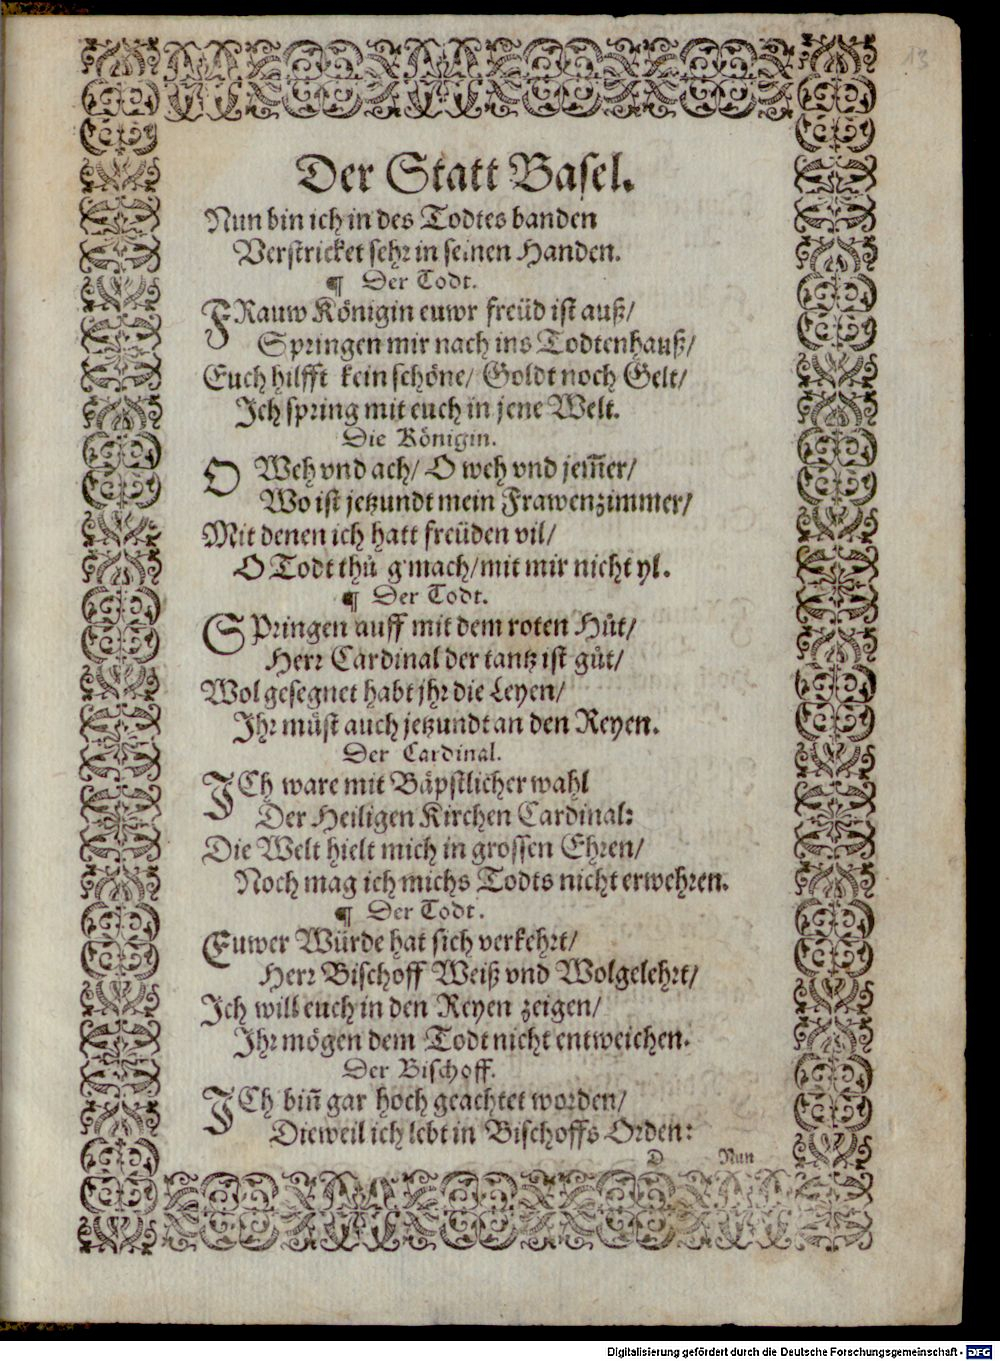 13
Der Statt Basel.
Nun bin ich in des Todtes banden
Verstricket sehr in seinen Handen.
¶ Der Todt.
FRauw Königin euwr freüd ist auß/
Springen mir nach ins Todtenhauß/
Euch hilfft kein schöne/ Goldt noch Gelt/
Ich spring mit euch in jene Welt.
Die Königin.
O Weh vnd ach/ O weh vnd jem̄er/
Wo ist jetzundt mein Frawenzimmer/
Mit denen ich hatt freüden vil/
O Todt thů g'mach/ mit mir nicht yl.
¶ Der Todt.
SPringen auff mit dem roten Hůt/
Herr Cardinal der tantz ist gůt/
Wol gesegnet habt jhr die Leyen/
Ihr müst auch jetzundt an den Reyen.
Der Cardinal.
ICh ware mit Bäpstlicher wahl
Der Heiligen Kirchen Cardinal:
Die Welt hielt mich in grossen Ehren/
Noch mag ich michs Todts nicht erwehren.
¶ Der Todt.
Euwer Würde hat sich verkehrt/
Herr Bischoff Weiß vnd Wolgelehrt/
Ich will euch in den Reyen zeigen/
Ihr mögen dem Todt nicht entweichen.
Der Bischoff.
ICh bin̄ gar hoch geachtet worden/
Dieweil ich lebt in Bischoffs Orden:
D Nun
Digitalisierung gefördert durch die Deutsche Forschungsgemeinschaft - DFG